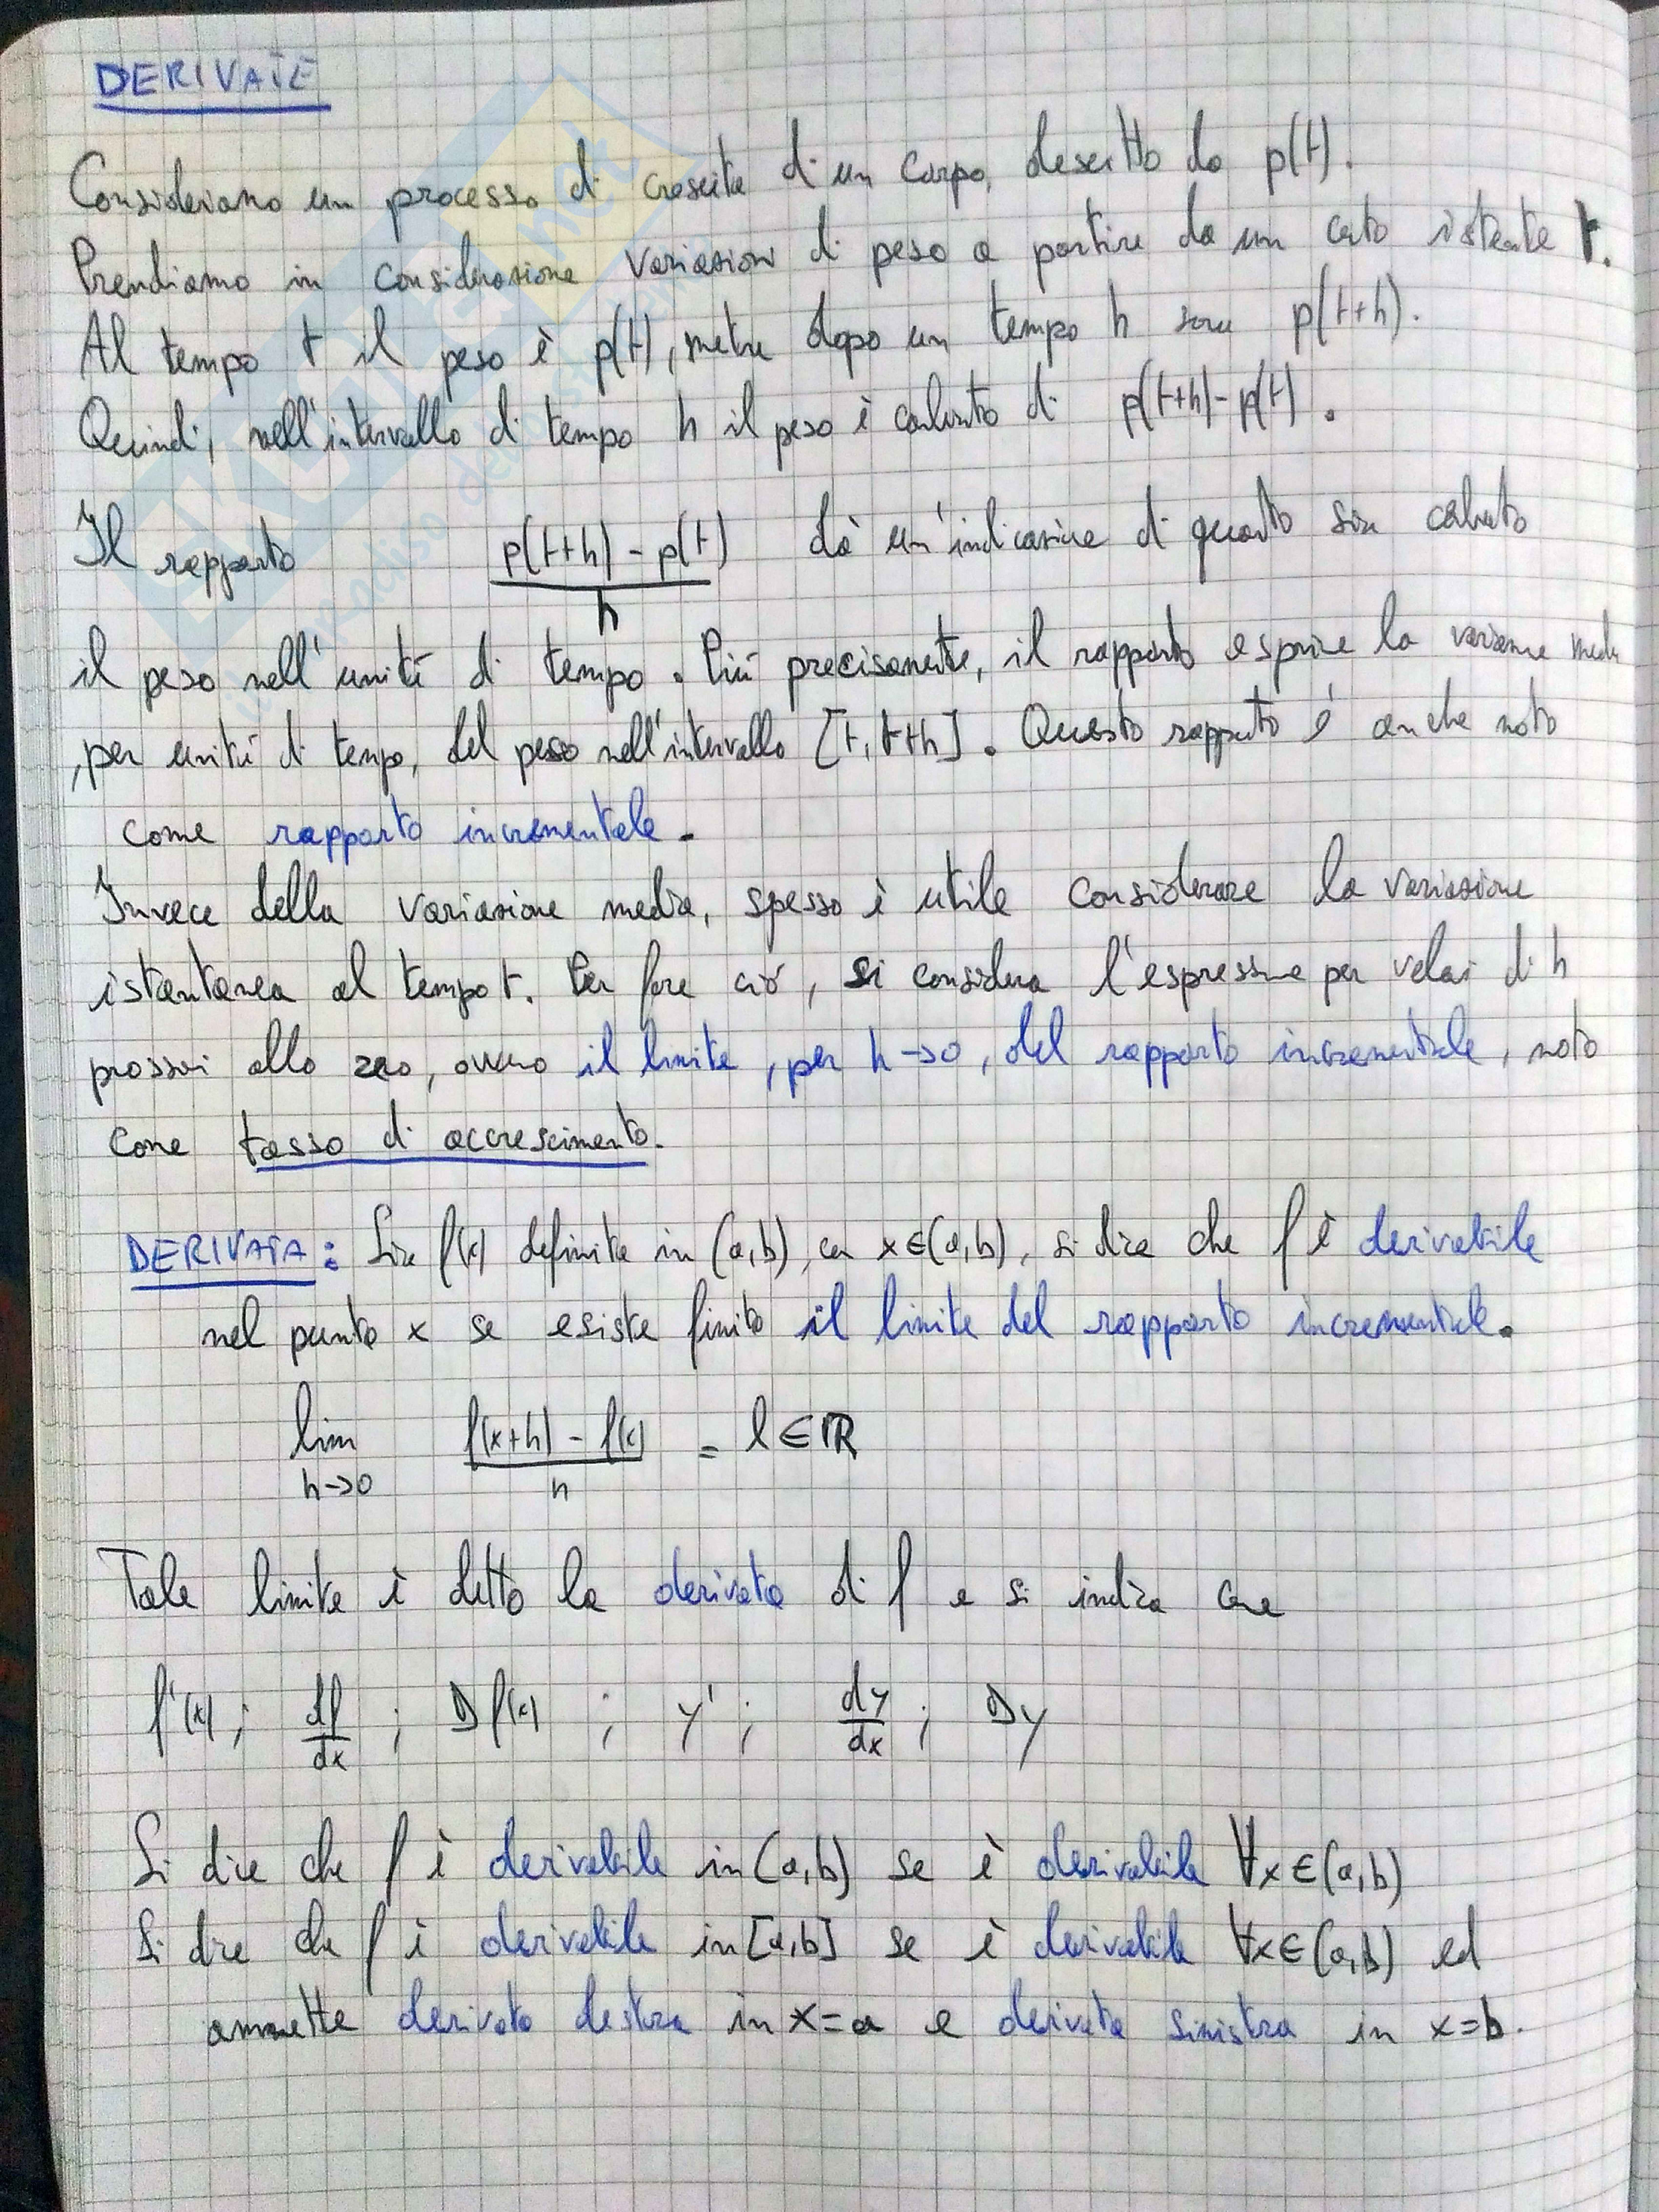 DERIVATE
Consideriamo un processo di crescita di un corpo, descritto da p(t).
Prendiamo in considerazione variazioni di peso a partire da un certo istante t.
Al tempo t il peso è p(t), mentre dopo un tempo h sarà p(t+h).
Quindi, nell'intervallo di tempo h il peso è calato di p(t+h)-p(t).
Il rapporto p(t+h) - p(t) / h dà un'indicazione di quanto sia calato
il peso nell'unità di tempo. Più precisamente, il rapporto esprime la variazione media
, per unità di tempo, del peso nell'intervallo [t, t+h]. Questo rapporto è anche noto
come rapporto incrementale.
Invece della variazione media, spesso è utile considerare la variazione
istantanea al tempo t. Per fare ciò, si considera l'espressione per valori di h
prossimi allo zero, ovvero il limite, per h→0, del rapporto incrementale, noto
come tasso di accrescimento.
DERIVATA: Sia f(x) definita in (a,b), con x∈(a,b), si dice che f è derivabile
nel punto x se esiste finito il limite del rapporto incrementale.
lim h→0 f(x+h) - f(x) / h = l ∈ ℝ
Tale limite è detto la derivata di f e si indica come
f'(x) ; df/dx ; D f(x) ; y' ; dy/dx ; Dy
Si dice che f è derivabile in (a,b) se è derivabile ∀x∈(a,b)
Si dice che f è derivabile in [a,b] se è derivabile ∀x∈(a,b) ed
ammette derivata destra in x=a e derivata sinistra in x=b.